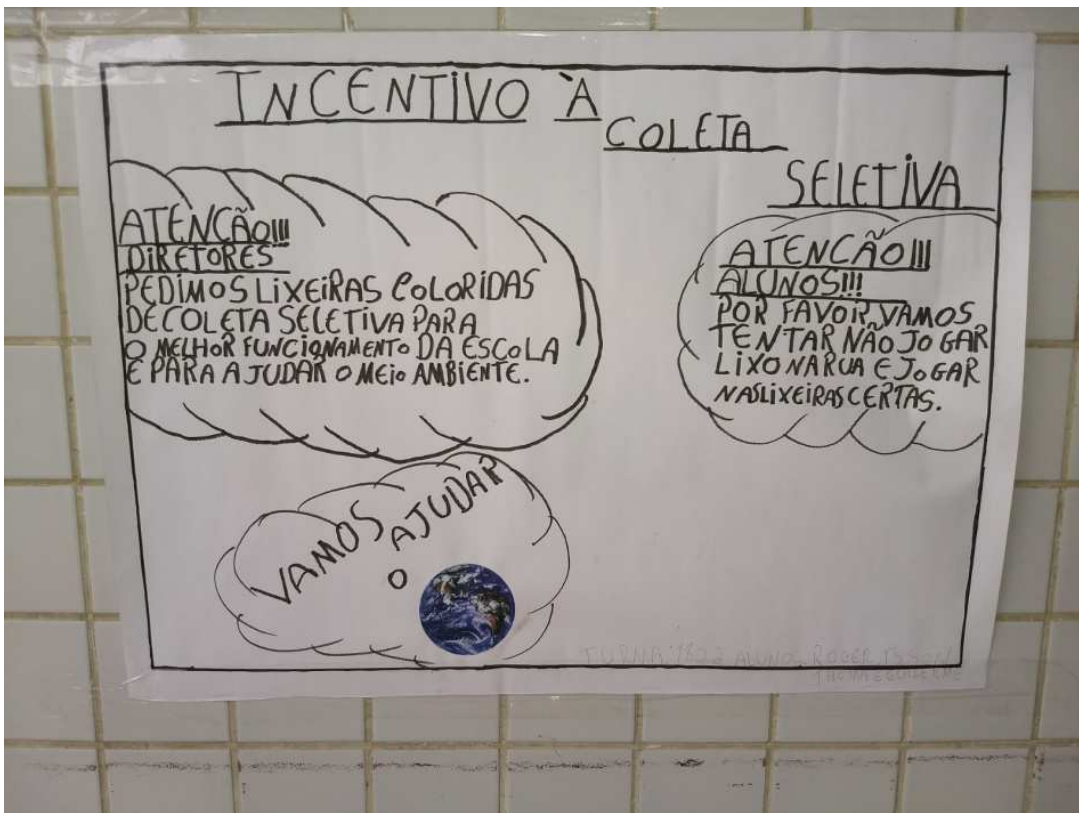 INCENTIVO À
COLETA
SELETIVA
ATENCÃO!!!
DIRETORES
PEDIMOS LIXEIRAS COLORIDAS
DE COLETA SELETIVA PARA
O MELHOR FUNCIONAMENTO DA ESCOLA
E PARA AJUDAR O MEIO AMBIENTE.
ATENCÃO!!!
ALUNOS!!!
POR FAVOR, VAMOS
TENTAR NÃO JOGAR
LIXO NA RUA E JOGAR
NAS LIXEIRAS CERTAS.
VAMOS AJUDAR
O
TURMA: 1802 ALUNOS ROGER
E GUILHERME